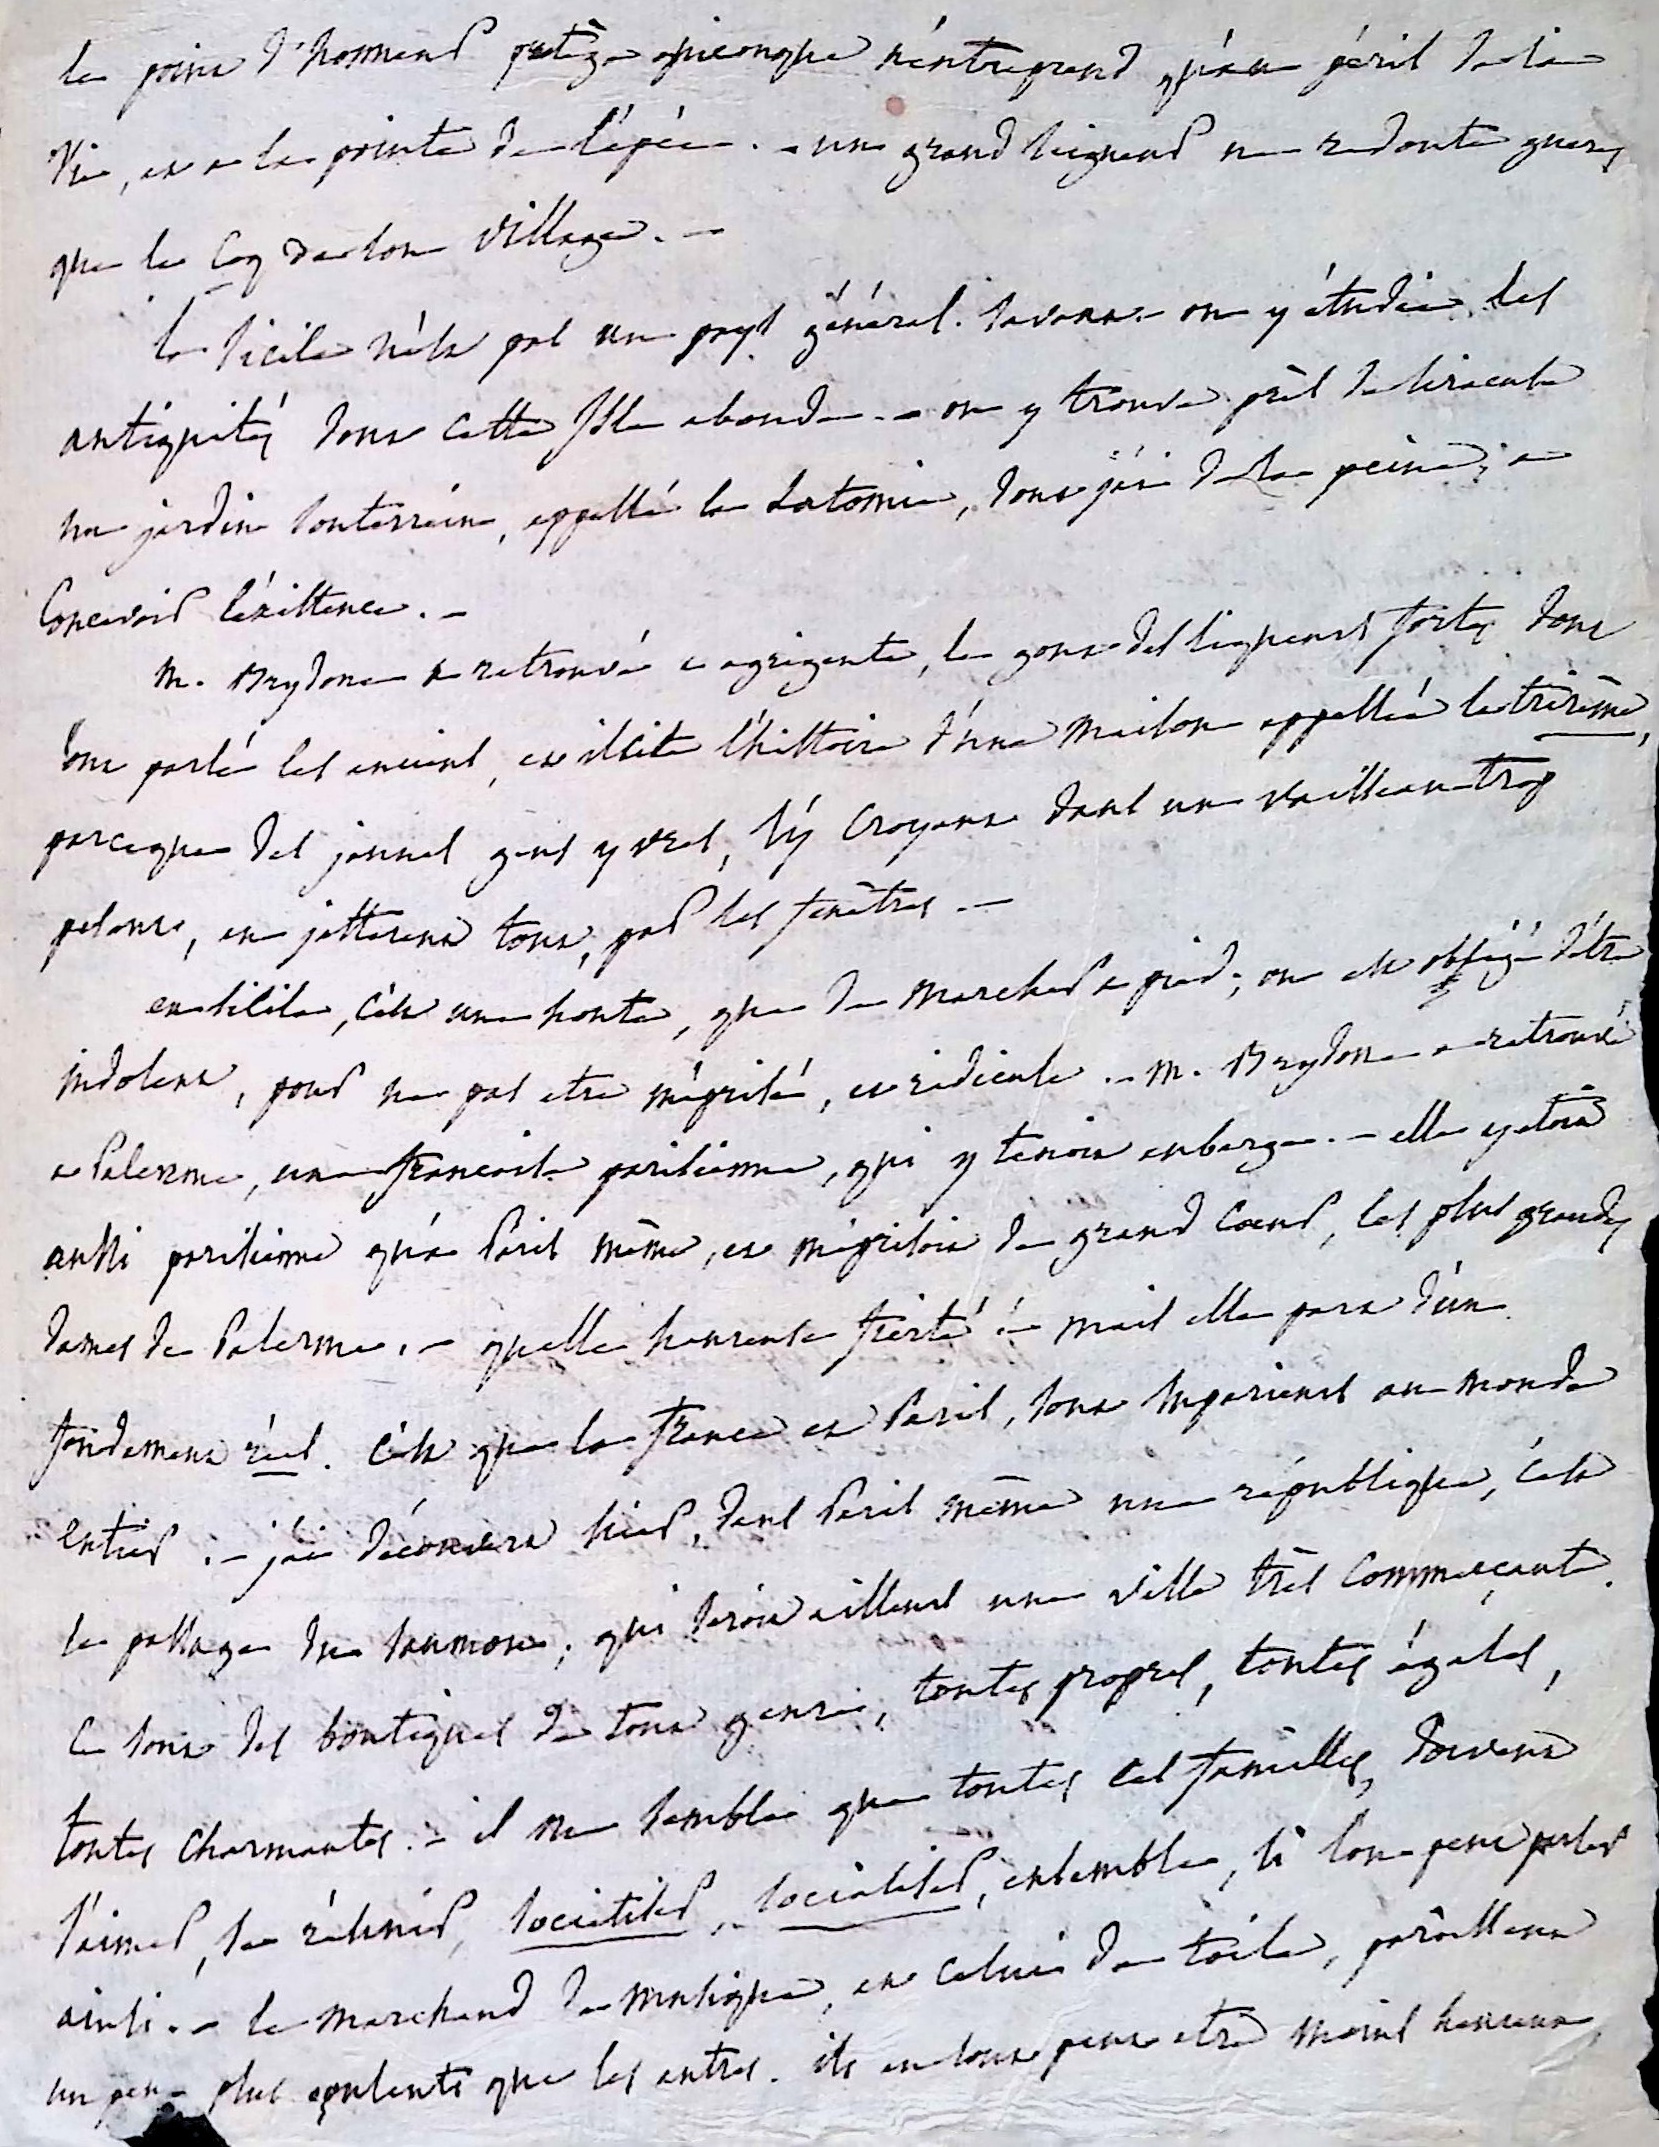 le point d'honneur protège quiconque n'entreprend qu'au péril de la
vie, et a la pointe de l'épée. - un grand seigneur ne redoute gueres
que le coq de son village. -
la Sicile n'est pas un pays général. savant - on y étudie les
antiquités dont cette Isle abonde. - on y trouve près de siracuse
un jardin souterrain, appellé la Latomie, dont j'ai de la peine, a
Concevoir l'éxistence. -
M. Brydone a retrouvé a agrigente, le gout des liqueurs fortes dont
ont parlé les anciens, et il cite l'histoire d'une maison appellée la trirème,
parceque des jeunes gens yvres, s'y croyant dans un vaisseau trop
pesant, en jetterent tout, par les fenêtres. -
en sicile, c'est une honte, que de marcher a pied; on est obligé d'être
indolent, pour ne pas etre méprisé, et ridicule. - M. Brydone a retrouvé
a Palerme, une francaise parisienne, qui y tenoit auberge. - elle y etoit
aussi parisienne qu'a Paris même, et méprisoit de grand coeur, les plus grandes
dames de Palerme. - quelle heureuse fierté ! - mais elle part d'un
fondement réel. c'est que la france et Paris, sont superieurs au monde
entier. - j'ai découvert hier, dans Paris même une république, c'est
le passage du saumon; qui seroit ailleurs une ville très commerçante.
Ce sont des boutiques de tout genre, toutes propres, toutes égales,
toutes charmantes. - il me semble que toutes ces familles, doivent
s'aimer, se réunir, sociétiser, socialiser, ensemble, si l'on peut parler
ainsi. - le marchand de musique, et celui de toile, paroissent
un peu plus opulents que les autres. ils en sont peut etre moins heureux,